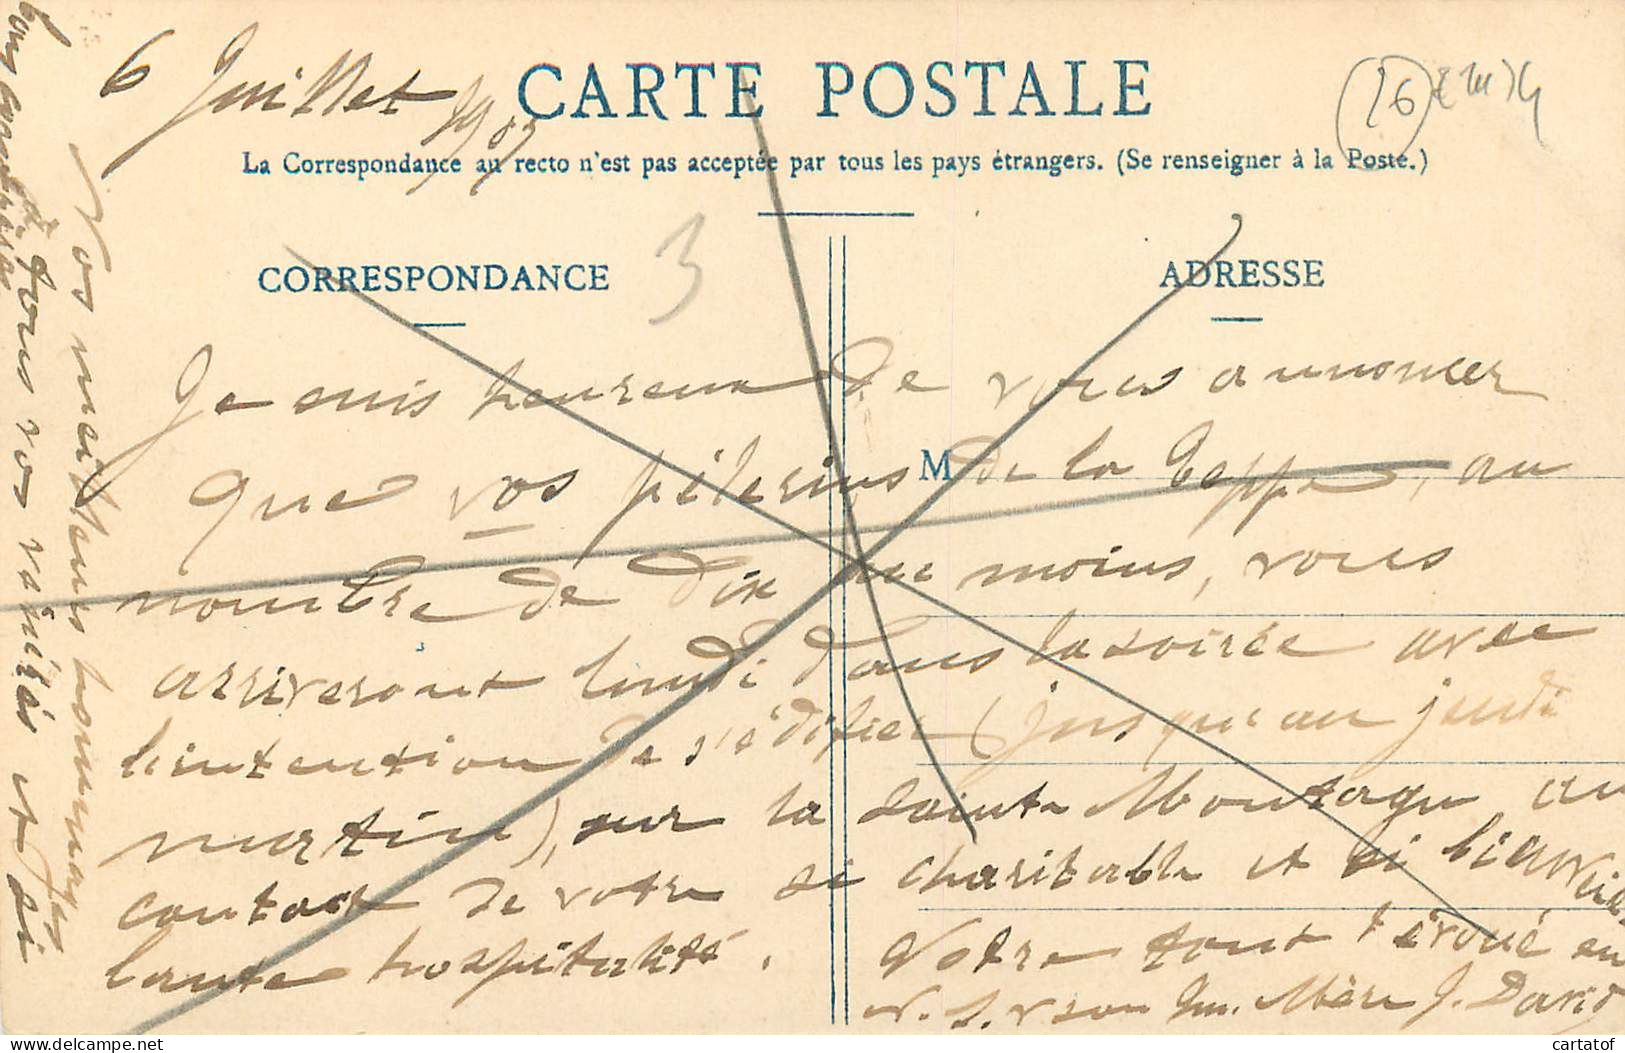 6 Juillet 1907
CARTE POSTALE
(26)
La Correspondance au recto n'est pas acceptée par tous les pays étrangers. (Se renseigner à la Poste.)
3
CORRESPONDANCE
ADRESSE
M
Je suis heureux de vous annoncer
que vos pèlerins de la Teppe, au
nombre de dix au moins, vous
arriveront lundi dans la soirée avec
l'intention de s'édifier (jusqu'au jeudi
matin), sur la sainte Montagne au
contact de votre si charitable et si bienveil
lante hospitalité.
Votre tout dévoué en
N. S. J. David
Nos meilleurs hommages
à tous vos vénérés et si
bons
cartatof